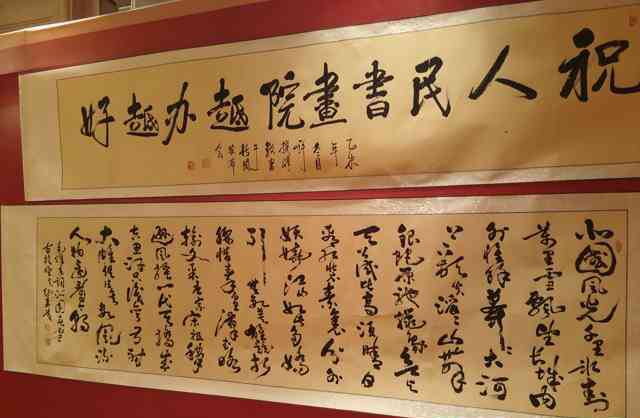 祝人民書畫院越办越好
乙未
年
北國風光千里冰封
万里雪飘望长城内
外惟餘莽莽大河
上下頓失滔滔山舞
銀蛇原馳蠟象欲與
天公試比高須晴日
看紅装素裹分外
妖娆江山如此多嬌
引无數英雄競折
腰惜秦皇漢武略
輸文采唐宗宋祖稍
遜風騷一代天驕成
吉思汗只識彎弓射
大雕俱往矣數風流
人物還看今朝
毛澤東詞沁園春雪